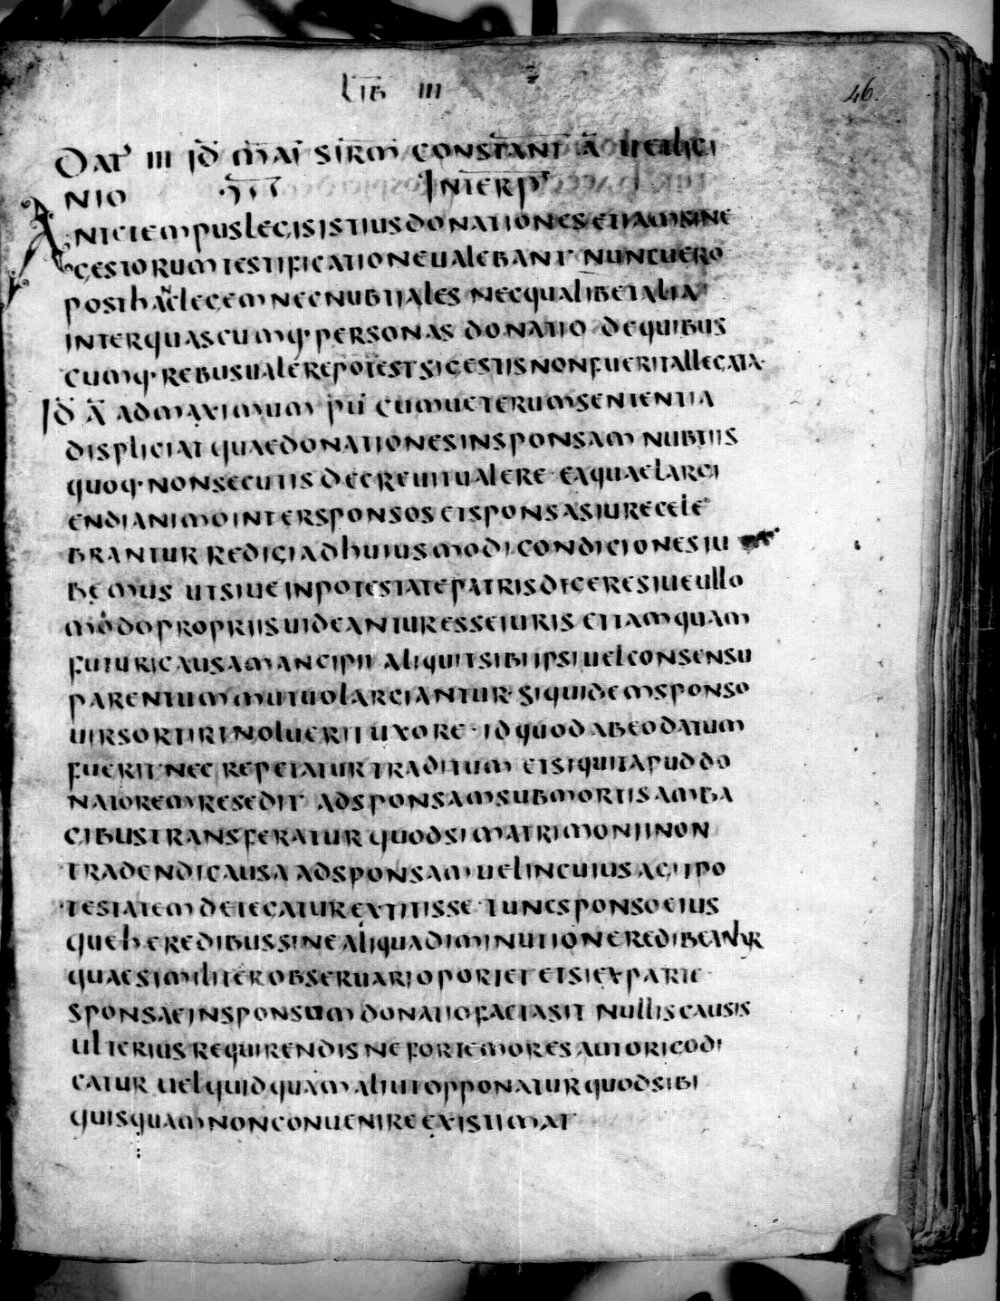 LIB III
46.
DAT III ID MAI SIRM CONSTANT A II ET LICI
NIO III INTERP
ANTE TEMPUS LEGIS ISTIUS DONATIONES ETIAM SINE
GESTORUM TESTIFICATIONE UALEBANT NUNC UERO
POST HAC LEGEM NEC NUBTIALES NEC QUALIBET ALIA
INTER QUASCUMQ· PERSONAS DONATIO DE QUIBUS
CUMQ· REBUS UALERE POTEST SI GESTIS NON FUERIT ALLEGATA·
ID A AD MAXIMUM PU CUM UETERUM SENTENTIA
DISPLICIAT QUAE DONATIONES IN SPONSAM NUBTIIS
QUOQ· NON SECUTIS DECREUIT UALERE EA QUAE LARGI
ENDI ANIMO INTER SPONSOS ET SPONSAS IURE CELE
BRANTUR REDIGI AD HUIUSMODI CONDICIONES IU
BEMUS UT SIUE IN POTESTATE PATRIS DIGERE SIUE ULLO
MODO PROPRII SUI DEANTUR ESSE IURIS ETIAM QUAM
FUTURI CAUSA MANCIPII ALIQUIT SIBI IPSI UEL CONSENSU
PARENTUM MUTUO LARGIANTUR· SI QUIDEM SPONSO
UIR SORTIRI NOLUERIT UXORE· ID QUOD AB EO DATUM
FUERIT NEC REPETATUR TRADITUM ET SI QUIT APUD DO
NATOREM RESEDIT AD SPONSAM SUBMOTIS AMBA
GIBUS TRANSFERATUR QUOD SI MATRIMONII NON
TRADENDI CAUSA AD SPONSAM UEL IN CUIUS AGIT PO
TESTATEM DETEGATUR EXTITISSE TUNC SPONSO EIUS
QUE HEREDIBUS SINE ALIQUA DIMINUTIONE REDIBENTUR
QUAE SIMILITER OBSERUARI OPORTET ET SI EX PARTE
SPONSAE IN SPONSUM DONATIO FACTA SIT NULLIS CAUSIS
ULTERIUS REQUIRENDIS NE FORTE MORES AUT ORIGO DI
CATUR UEL QUIDQUAM ALIUT OPPONATUR QUOD SIBI
QUISQUAM NON CONUENIRE EXISTIMAT